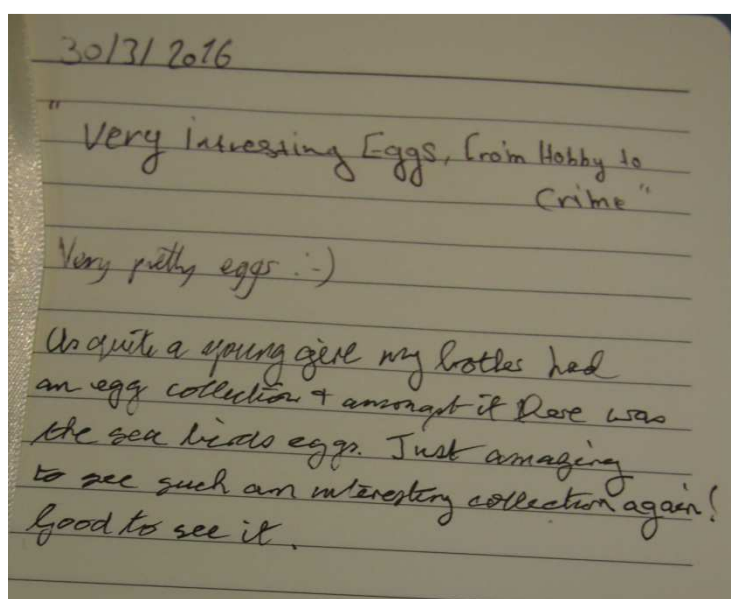 30/3/2016
"Very Intresting Eggs, from Hobby to
Crime"
Very pretty eggs :-)
As quite a young girl my brother had
an egg collection & amongst it there was
the sea birds eggs. Just amazing
to see such an interesting collection again!
Good to see it.